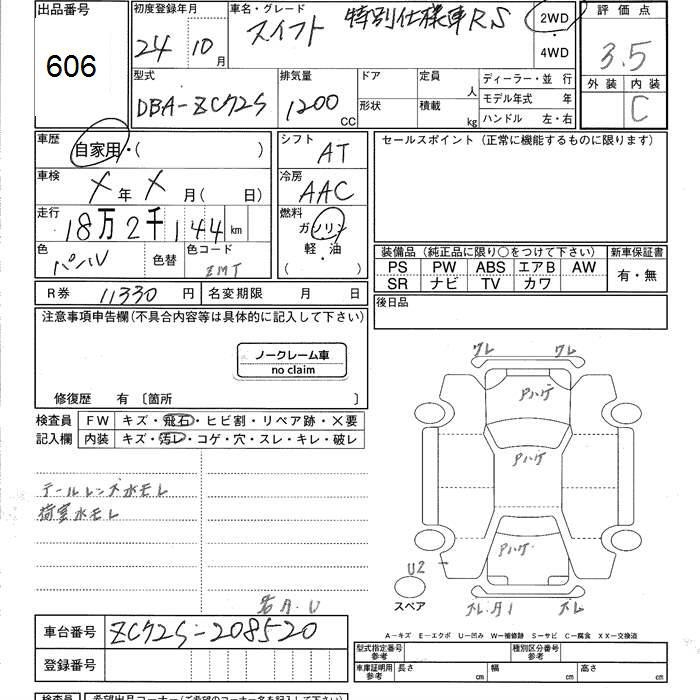 出品番号
606
初度登録年月
24 10月
車名・グレード
スイフト 特別仕様車RS
2WD
・
4WD
評価点
3.5
外装 内装
C
型式
DBA-ZC72S
排気量
1200
CC
ドア
形状
定員
人
積載
kg
ディーラー・並 行
モデル年式 年
ハンドル 左・右
車歴
自家用・( )
車検
X年 X月( 日)
走行
18万2千144km
色
パール
色替
色コード
ZMT
シフト
AT
冷房
AAC
燃料
ガソリン
軽・油
( )
セールスポイント (正常に機能するものに限ります)
装備品 (純正品に限り○をつけて下さい)
新車保証書
PS PW ABS エアB AW
SR ナビ TV カワ
有・無
R券 11330 円
名変期限 月 日
後日品
注意事項申告欄(不具合内容等は具体的に記入して下さい)
ノークレーム車
no claim
修復歴 有 〔箇所 〕
検査員
記入欄
FW キズ・飛石・ヒビ割・リペア跡・×要
内装 キズ・汚レ・コゲ・穴・スレ・キレ・破レ
テールレンズ水モレ
荷室水モレ
ワレ ワレ
Pハゲ
Pハゲ
Pハゲ
U2
スペア
ズレ
A-キズ E-エクボ U-凹み W-補修跡 S-サビ C-腐食 XX-交換済
車台番号 ZC72S-208520
登録番号
型式指定番号
参考
種別区分番号
参考
車庫証明用
参考
長さ cm
幅 cm
高さ cm
検査員
希望出品コーナー(ご希望のコーナー名を記入下さい)